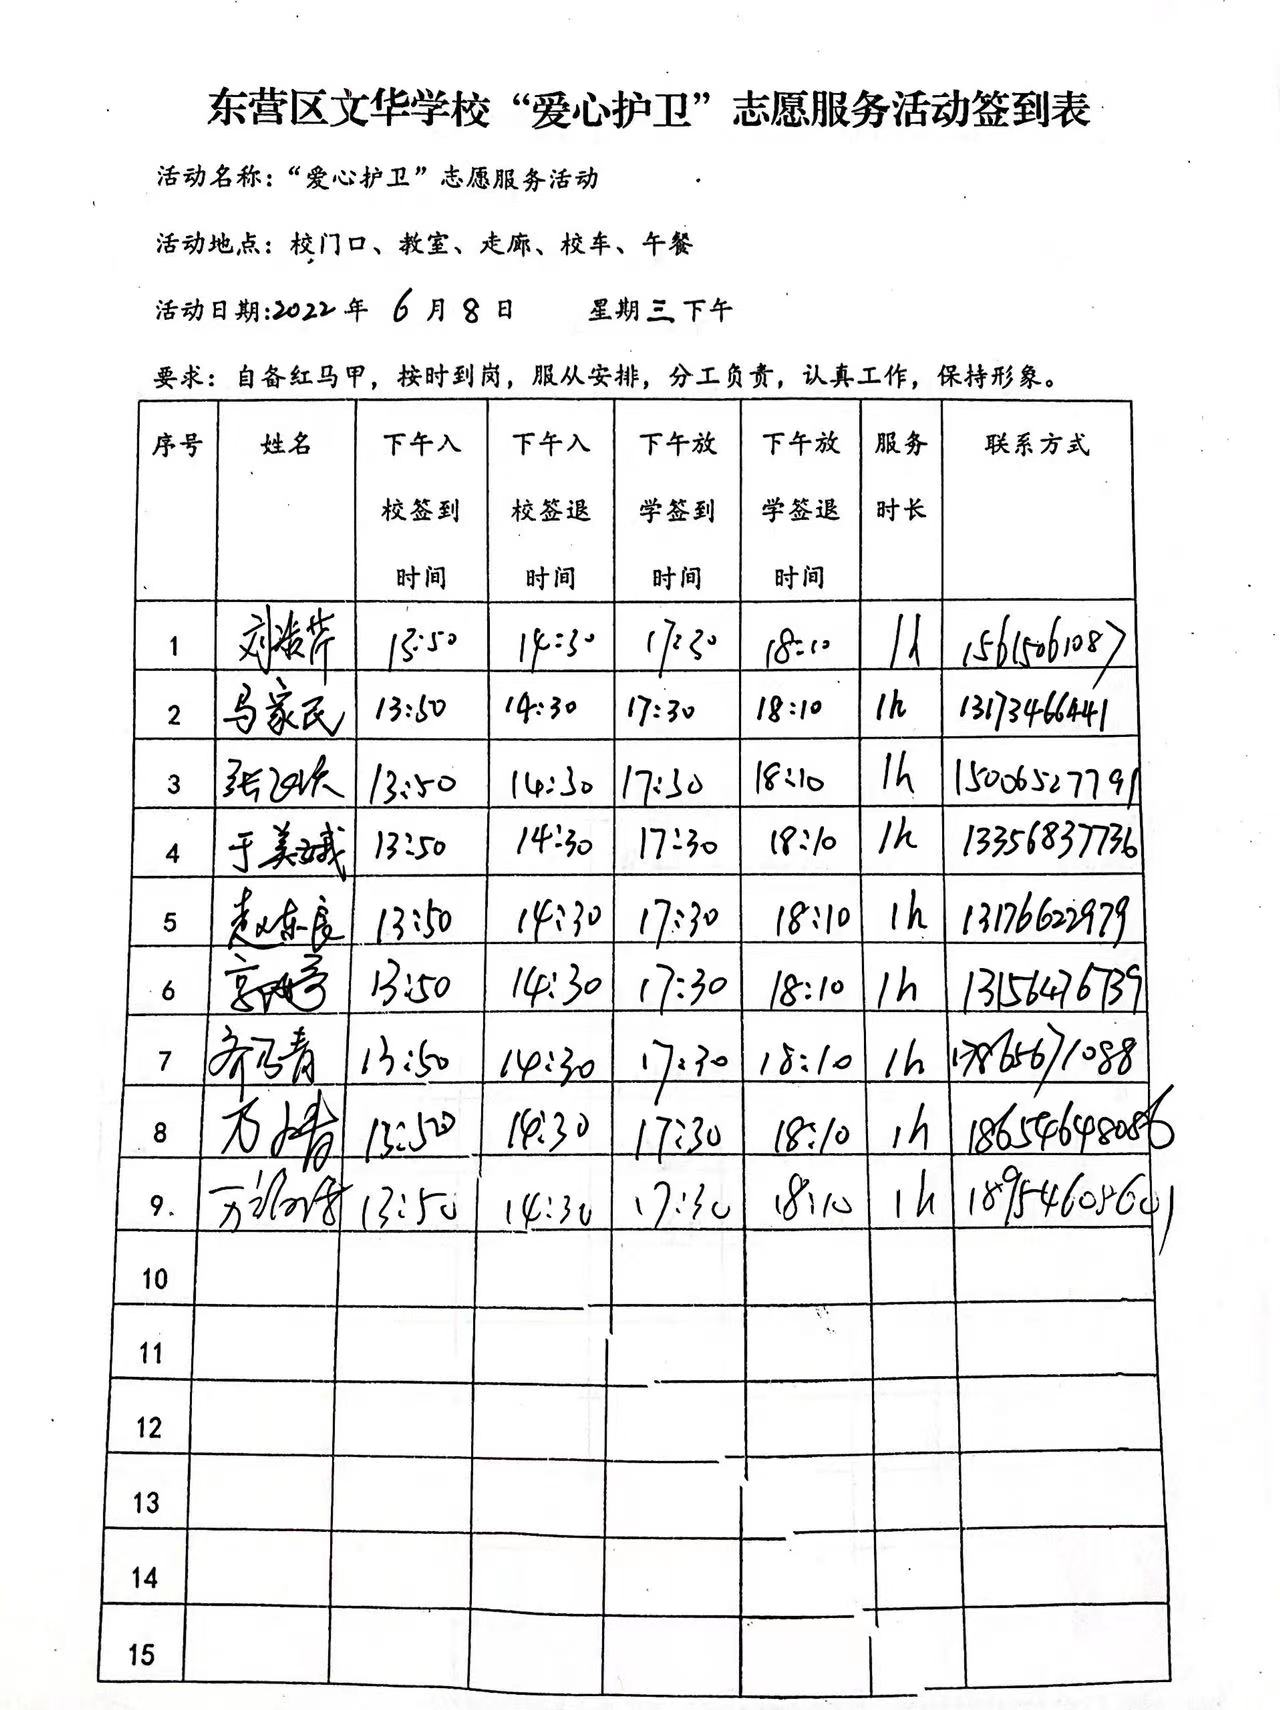 东营区文华学校“爱心护卫”志愿服务活动签到表
活动名称：“爱心护卫”志愿服务活动
活动地点：校门口、教室、走廊、校车、午餐
活动日期:2022年 6月8日 星期三下午
要求：自备红马甲，按时到岗，服从安排，分工负责，认真工作，保持形象。
序号 姓名 下午入校签到时间 下午入校签退时间 下午放学签到时间 下午放学签退时间 服务时长 联系方式
1 刘 13:50 14:30 17:30 18:10 1h 15615061087
2 马家民 13:50 14:30 17:30 18:10 1h 13173466441
3 张 13:50 14:30 17:30 18:10 1h 15006527791
4 于美娥 13:50 14:30 17:30 18:10 1h 13356837736
5 赵东良 13:50 14:30 17:30 18:10 1h 13176622979
6 13:50 14:30 17:30 18:10 1h 13156476739
7 青 13:50 14:30 17:30 18:10 1h 17865671088
8 13:50 14:30 17:30 18:10 1h 18654648086
9. 万 13:50 14:30 17:30 18:10 1h 18954605601
10
11
12
13
14
15